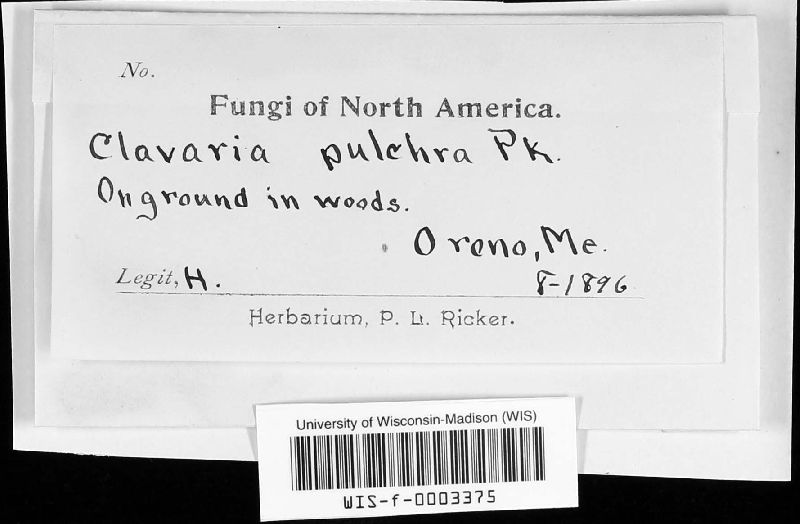 No.
Fungi of North America.
Clavaria pulchra Pk.
On ground in woods.
Orono, Me.
Legit, H. 8-1896
Herbarium, P. L. Ricker.
University of Wisconsin-Madison (WIS)
WIS-f-0003375